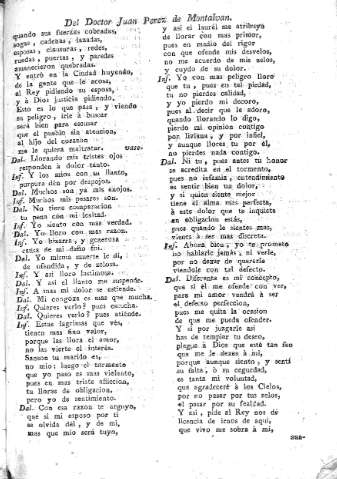 Del Doctor Juan Perez de Montalvan.
quando sus fuerzas cobradas,
sogas, cadenas, lazadas,
esposas, clausuras, redes,
ruedas, puertas, y paredes
amanecieron quebradas.
Y entró en la Ciudad huyendo,
de la gente que le acosa,
al Rey pidiendo su esposa,
y á Dios justicia pidiendo.
Esto es lo que pasa, y viendo
su peligro, iré á buscar
será bien para escusar
que el pueblo sin atencion,
al hijo del oceano
me le quiera maltratar. vase.
Dal. Llorando mis tristes ojos
responden á dolor tanto.
Inf. Y los mios con su llanto,
purpura dan por despojos.
Dal. Muchos son ya mis enojos.
Inf. Muchos mis pesares son.
Dal. No tiene comparacion
tu pena con mi lealtad.
Inf. Yo siento con mas verdad.
Dal. Yo lloro con mas razon.
Inf. Yo bizarra, y generosa
causa de mi daño fui.
Dal. Yo misma muerte le di,
de ofendida, y de zelosa.
Inf. Y asi lloro lastimosa.
Dal. Y asi el llanto me suspende.
Inf. A mas mi dolor se estiende.
Dal. Mi congoja es mas que mucha.
Inf. Quieres verlo? pues escucha.
Dal. Quieres verlo? pues atiende.
Inf. Estas lagrimas que ves,
tienen mas fino valor,
porque las llora el amor,
no las vierte el interés.
Sanson tu marido es,
no mio; luego el tormento
que yo paso es mas violento,
pues en mas triste afliccion,
tu lloras de obligacion,
pero yo de sentimiento.
Dal. Con esa razon te arguyo,
que si mi esposo por ti
se olvida de mi, y de mi,
mas que mio será tuyo,
y asi el laurél me atribuyo
de llorar con mas primor,
pues en medio del rigor
con que ofende mis desvelos,
no me acuerdo de mis zelos,
y cuydo de su dolor.
Inf. Yo con mas peligro lloro
que tu, pues en tal piedad,
tu no pierdes calidad,
y yo pierdo mi decoro,
pues al decir que le adoro,
quando llorando lo digo,
pierdo mi opinion contigo
por liviana, y por infiel,
y aunque llores tu por él,
no pierdes nada contigo.
Dal. Ni tu, pues antes tu honor
se acredita en el tormento,
pues no infamia, entendimiento
es sentir bien un dolor,
y si quien siente mejor
tiene el alma mas perfecta,
á este dolor que te inquieta
en obligacion estás,
pues quando le sientes mas,
vienes á ser mas discreta.
Inf. Ahora bien; yo te prometo
no hablarle jamás, ni verle,
por no dexar de quererle
viendole con tal defecto.
Dal. Diferente es mi concepto,
que si él me ofende con ver,
para mi amor vendrá á ser
el defecto perfeccion,
pues me quita la ocasion
de que me pueda ofender.
Y si por juzgarle asi
has de templar tu deseo,
plegue á Dios que esté tan feo
que me le dexes á mi,
porque aunque siento, y senti
su falta, ó su ceguedad,
es tanta mi voluntad,
que agradeceré á los Cielos,
por no pasar por tus zelos,
el pasar por su fealdad.
Y asi, pide al Rey nos dé
licencia de irnos de aqui,
que vivo me sobra á mi,